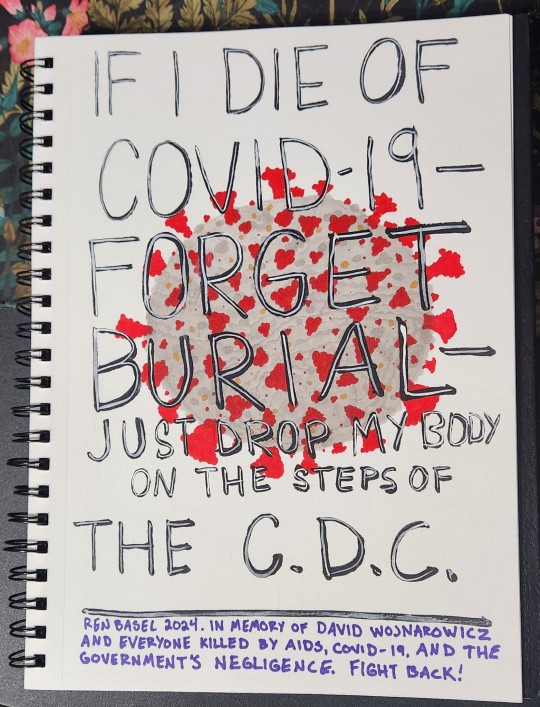 IF I DIE OF
COVID-19-
FORGET
BURIAL-
JUST DROP MY BODY
ON THE STEPS OF
THE C.D.C.
REN BASEL 2024. IN MEMORY OF DAVID WOJNAROWICZ
AND EVERYONE KILLED BY AIDS, COVID-19, AND THE
GOVERNMENT'S NEGLIGENCE. FIGHT BACK!